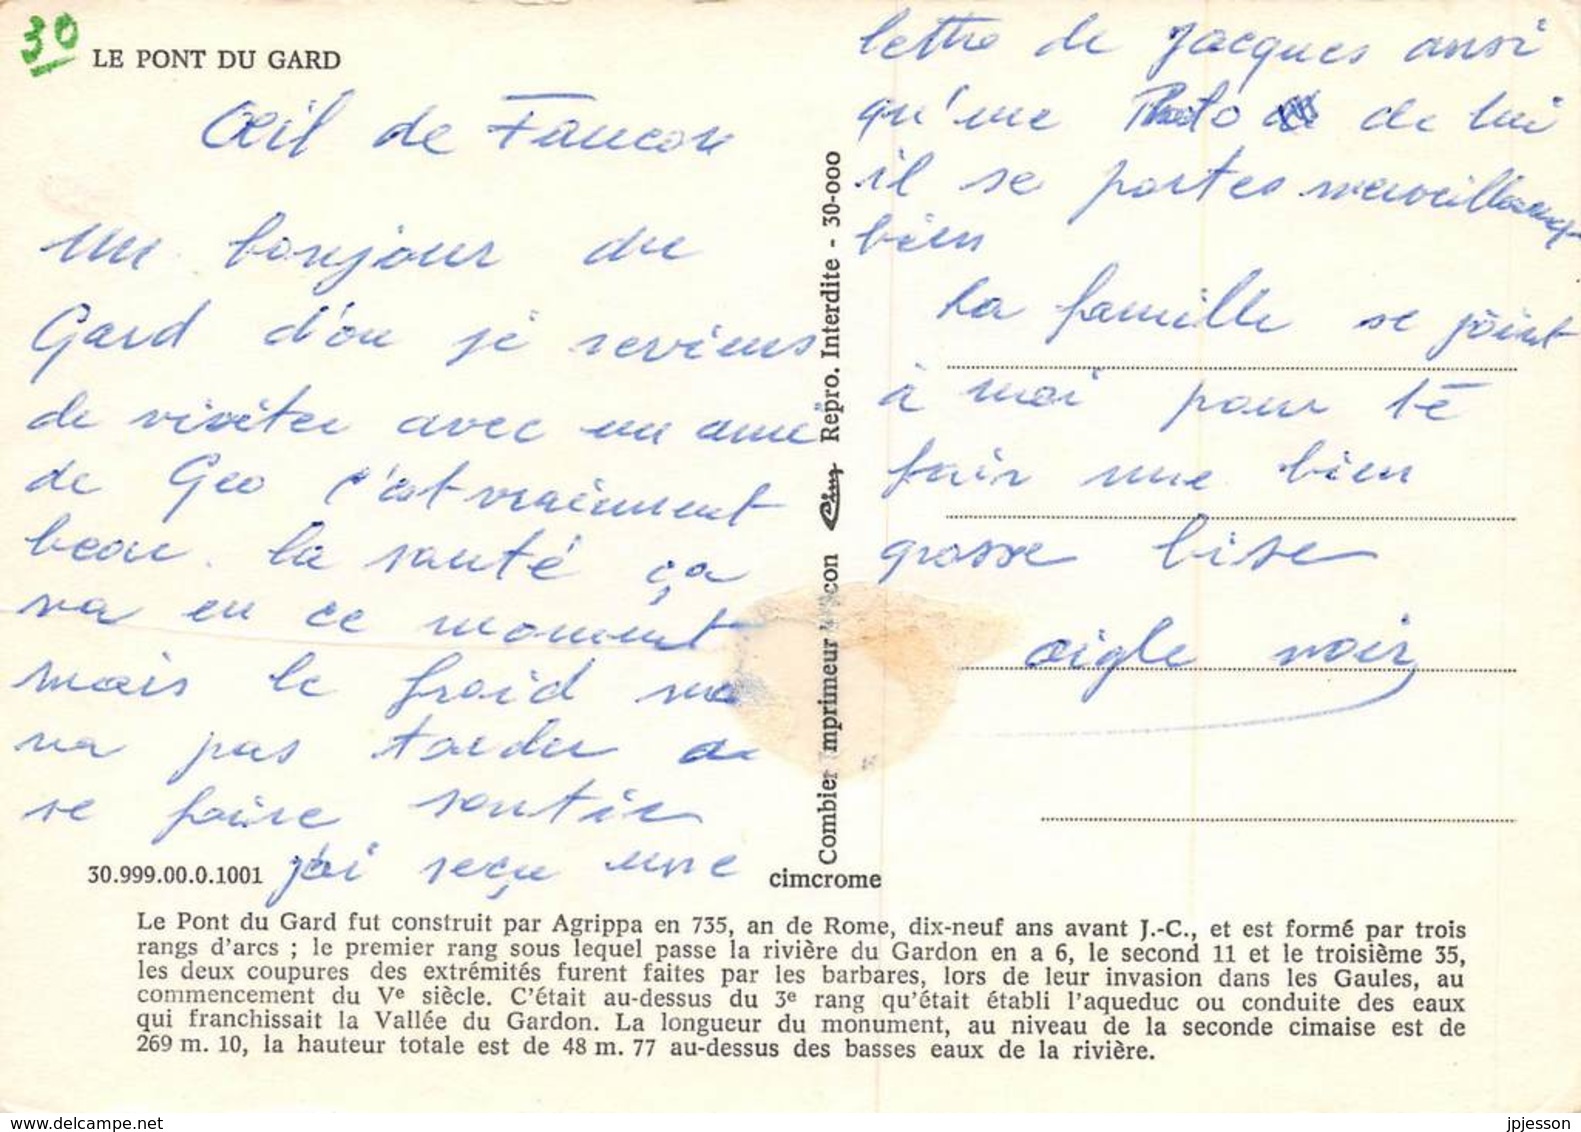 30
LE PONT DU GARD
Œil de Faucon
un bonjour du
Gard d'ou je reviens
de visiter avec un ami
de Geo c'est vraiment
beau. la santé ça
va en ce moment
mais le froid ne
va pas tarder a
se faire sentir
j'ai reçu une
lettre de Jacques ansi
qu'une Photo de lui
il se portes merveilleusement
bien
la famille se joint
à moi pour te
fair une bien
grosse bise
aigle noir
30.999.00.0.1001
cimcrome
Combier Imprimeur Macon Cim Repro. Interdite - 30-000
Le Pont du Gard fut construit par Agrippa en 735, an de Rome, dix-neuf ans avant J.-C., et est formé par trois
rangs d'arcs ; le premier rang sous lequel passe la rivière du Gardon en a 6, le second 11 et le troisième 35,
les deux coupures des extrémités furent faites par les barbares, lors de leur invasion dans les Gaules, au
commencement du Ve siècle. C'était au-dessus du 3e rang qu'était établi l'aqueduc ou conduite des eaux
qui franchissait la Vallée du Gardon. La longueur du monument, au niveau de la seconde cimaise est de
269 m. 10, la hauteur totale est de 48 m. 77 au-dessus des basses eaux de la rivière.
Delcampe.net
jpjesson